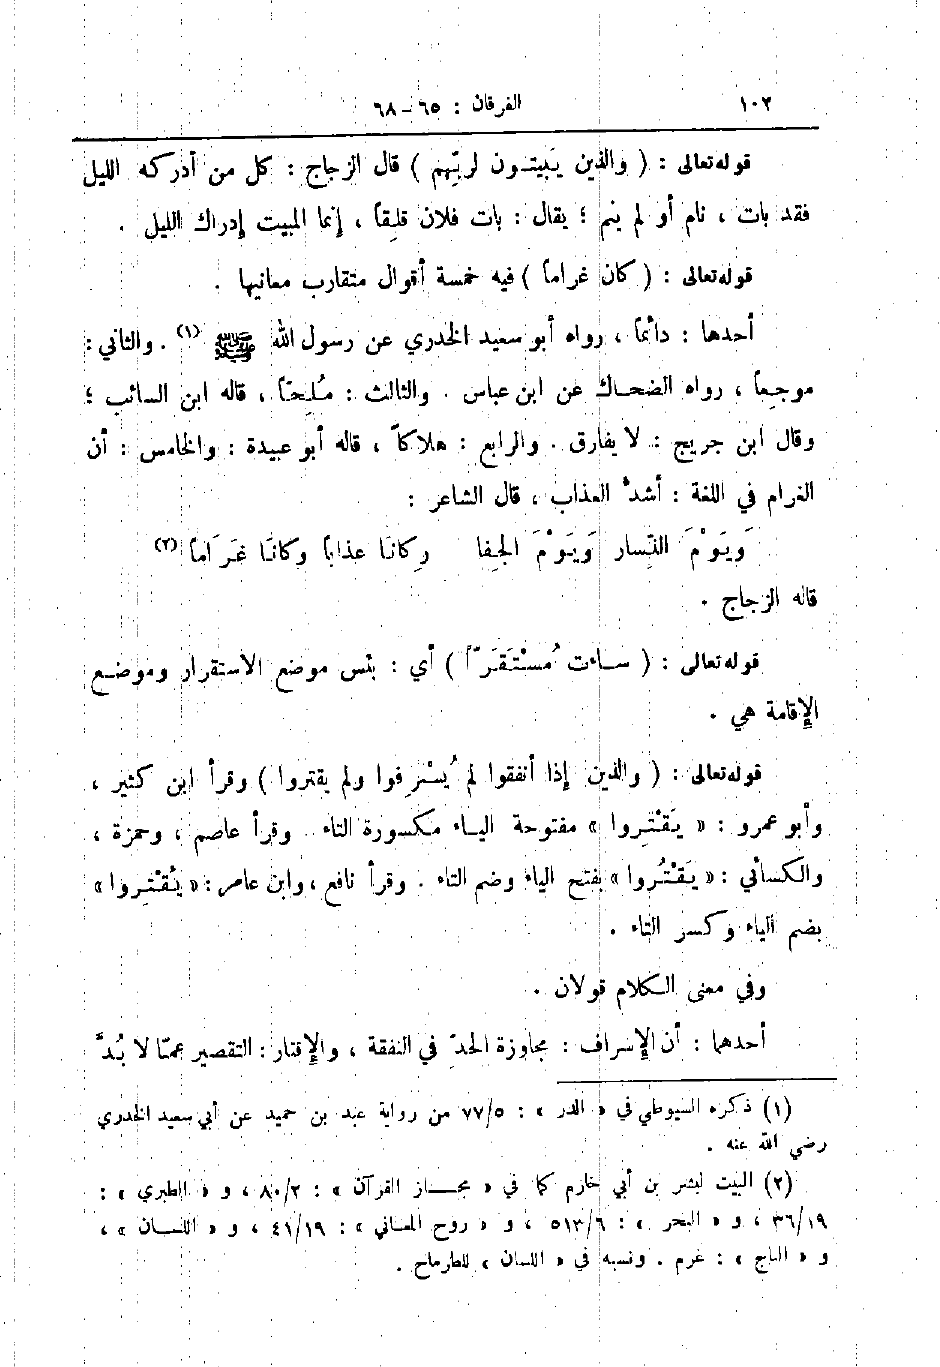 ١٠٢ الفرقان : ٦٥ – ٦٨
قوله تعالى : ( والذين يَبيتـون لربِّهم ) قال الزجاج : كل من أدركه الليل
فقد بات ، نام أو لم ينم ؛ يقال : بات فلان قلِقاً ، إنما المبيت إدراك الليل .
قوله تعالى : ( كان غراماً ) فيه خمسة أقوال متقارب معانيها .
أحدها : دائماً ، رواه أبو سعيد الخدري عن رسول الله ﷺ (١) . والثاني :
موجِعاً ، رواه الضحـاك عن ابن عباس . والثالث : مُلِحّاً ، قاله ابن السائب ؛
وقال ابن جريج : لا يفارق . والرابع : هلاكاً ، قاله أبو عبيدة : والخامس : أن
الغرام في اللغة : أشدُّ العذاب ، قال الشاعر :
وَيَوْمَ النِّسار وَيَوْمَ الجِفا رِ كانَا عذاباً وكانَا غَرَاماً (٢)
قاله الزجاج .
قوله تعالى : ( سـاءت مُسْتَقَرّاً ) أي : بئس موضع الاستقرار وموضـع
الإقامة هي .
قوله تعالى : ( والذين إذا أنفقوا لم يُسْرِفوا ولم يقتروا ) وقرأ ابن كثير ،
وأبو عمرو : « يَقْتِروا » مفتوحة اليـاء مكسورة التاء . وقرأ عاصم ، وحمزة ،
والكسائي : « يَقْتُروا » بفتح الياء وضم التاء . وقرأ نافع ، وابن عامر : « يُقْتِروا »
بضم الياء وكسر التاء .
وفي معنى الكلام قولان .
أحدهما : أن الإسراف : مجاوزة الحدّ في النفقة ، والإقتار : التقصير عمّا لا بُدَّ
(١) ذكره السيوطي في « الدر » : ٧٧/٥ من رواية عبد بن حميد عن أبي سعيد الخدري
رضي الله عنه .
(٢) البيت لبشر بن أبي خازم كما في « مجـاز القرآن » : ٨٠/٢ ، و « الطبري » :
٣٦/١٩ ، و « البحر » : ٥١٣/٦ ، و « روح المعـاني » : ٤١/١٩ ، و « اللسـان » ،
و « التاج » : غرم . ونسبه في « اللسان » للطرماح .